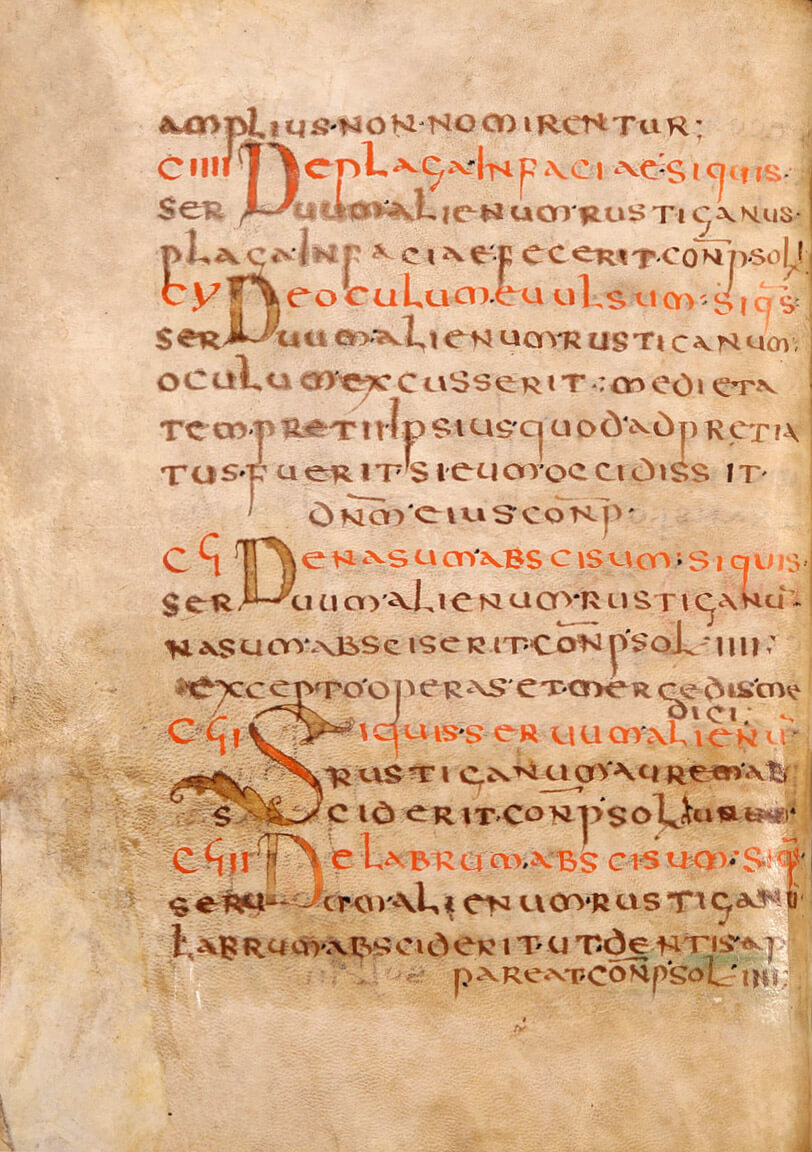 amplius·non·nominentur;
ciiii De plaga·In faciae·si quis·
ser uum·alienum·rusticanus·
plaga·In faciae·fecerit·con̄p·sol·I
cv De oculum·euulsum·siq̄s·
ser uum·alienum·rusticanum·
oculum·excusserit·:medieta
tem·pretii·Ipsius·quod·adpretia
tus·fuerit·si eum·occidissit·
dn̄m·eius·con̄p·
cϛ De nasum·abscisum:si quis·
ser uum·alienum·rusticanū·
nasum·absciserit·con̄p·sol·iiii;
excepto·operas·et·mercedis me
dici;
cϛi Si quis·ser uum·alienū
rusticanum·aurem·ab
s ciderit·con̄p·sol·
cϛii De labrum·abscisum·siq̄s
seru um·alienum·rusticanū
labrum·absciderit·ut·dentis·ap
pareat·con̄p·sol·iiii;